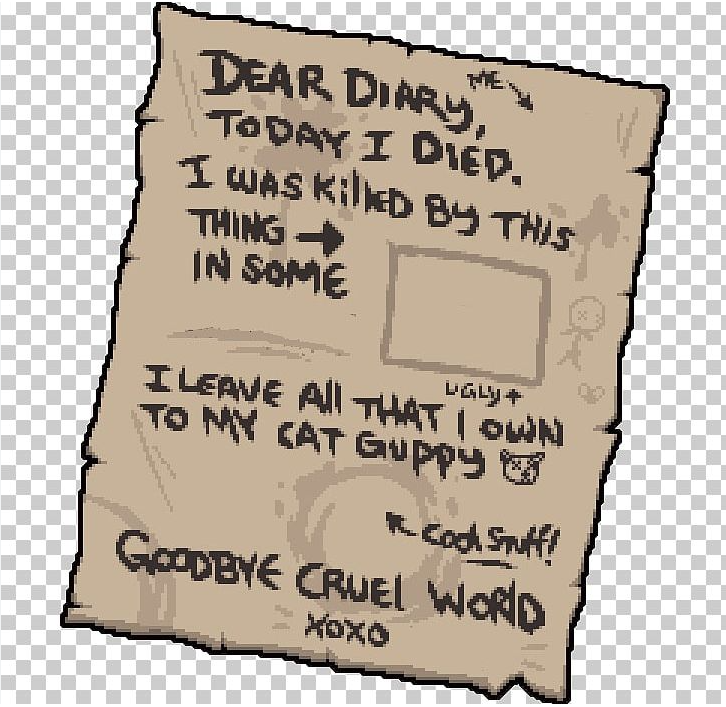 ME
DEAR DIARY,
TODAY I DIED.
I WAS KillED BY THIS
THING →
IN SOME
UGLY ↑
I LEAVE All THAT I OWN
TO MY CAT GUPPY
↖ Cool Stuff!
GOODBYE CRUEl WORlD
XOXO